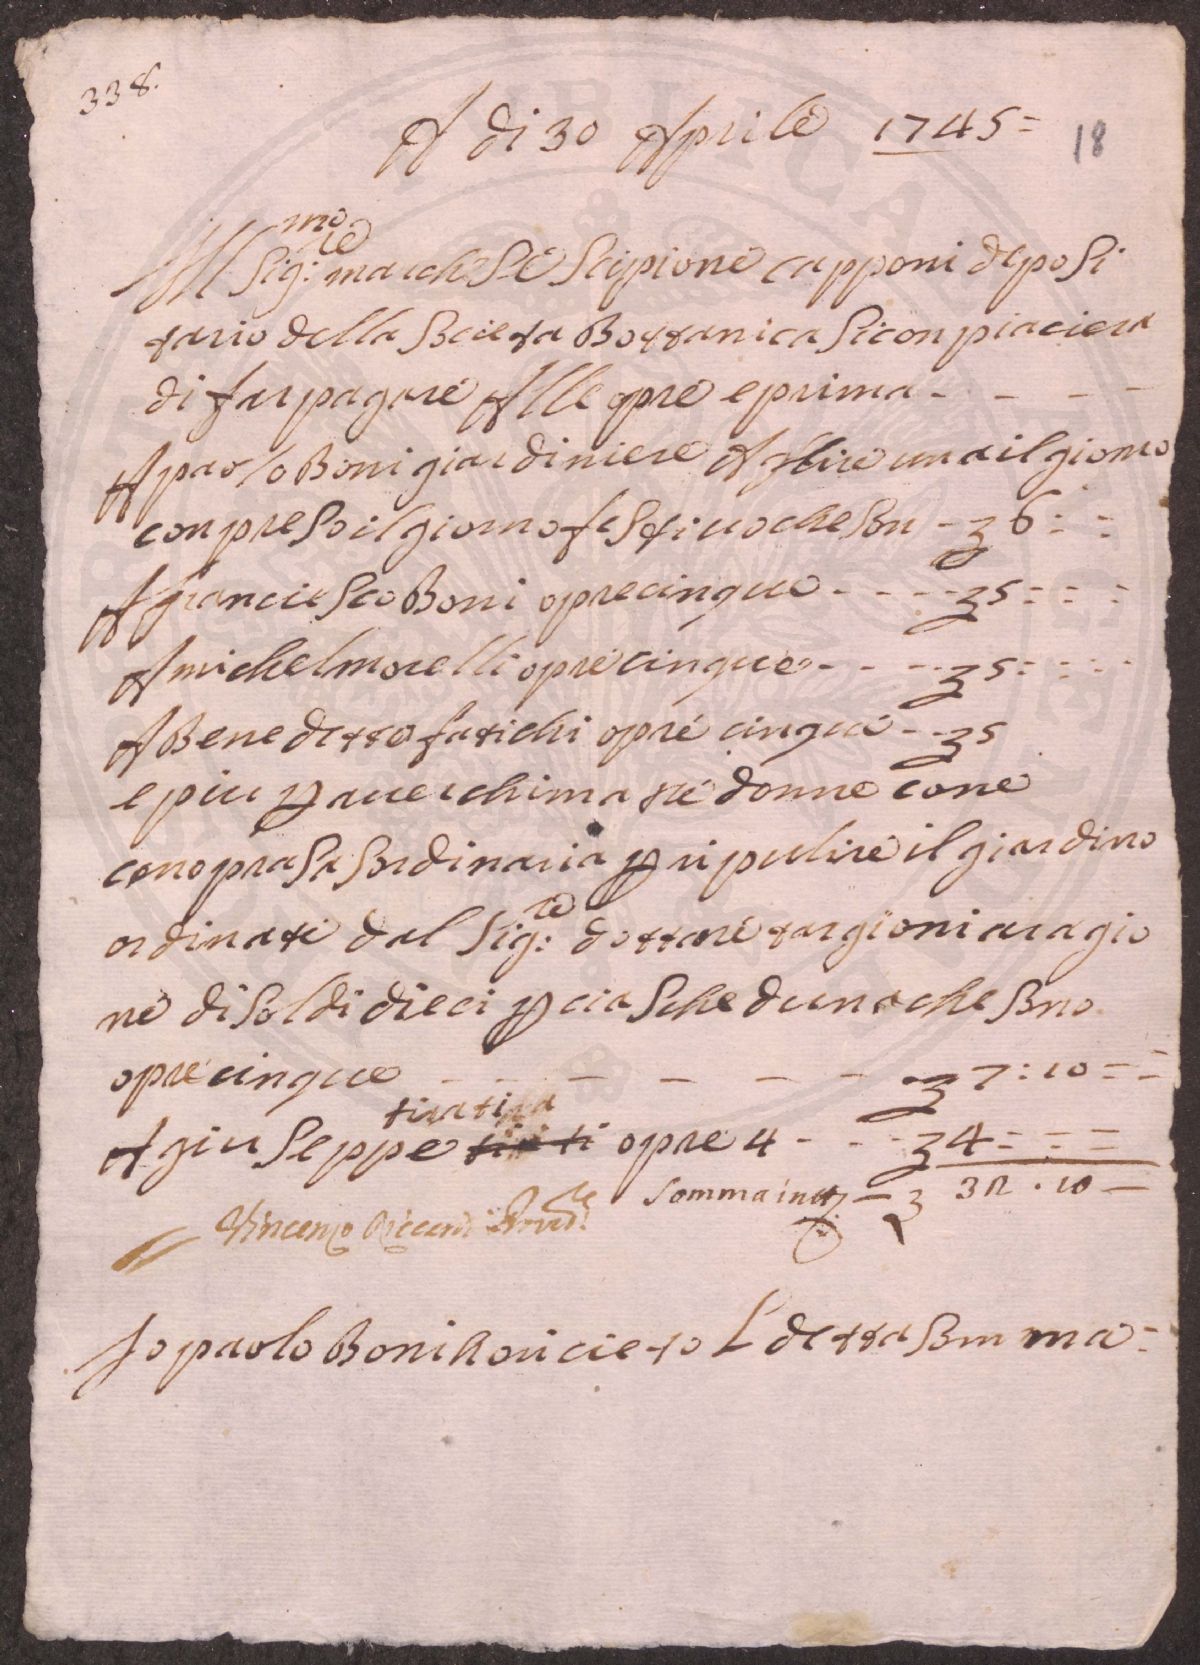 338.
A di 30 Aprile 1745=
18
Ill mo
Sig:re marchese Scipione capponi deposi
tario della Societa Bottanica si conpiaciera
di far pagare Alle opre e prima - - - -
A paolo Boni giardiniere A lire una il giorno
conpreso il giorno festiuo che son - 6 : -
A franciesco Boni opre cinque - - - - 5 : : :
A michel morelli opre cinque - - - - 5 : : :
A Benedetto fatichi opre cinque - - 5
e piu p auer chimate donne cone
cono pra sa sordinaria p ripulire il giardino
ordinate dal Sig:re dottore targioni a ragio
ne di soldi dieci p ciascheduna che sono
opre cinque - - - - - - 7 : 10 = =
tiratira
A giuseppe opre 4 - - - 4 = = =
Somma in tt - 32 . 10 -
Vincenzo Riccardi Provd:re
Io paolo Boni Riouicieto L detta somma =